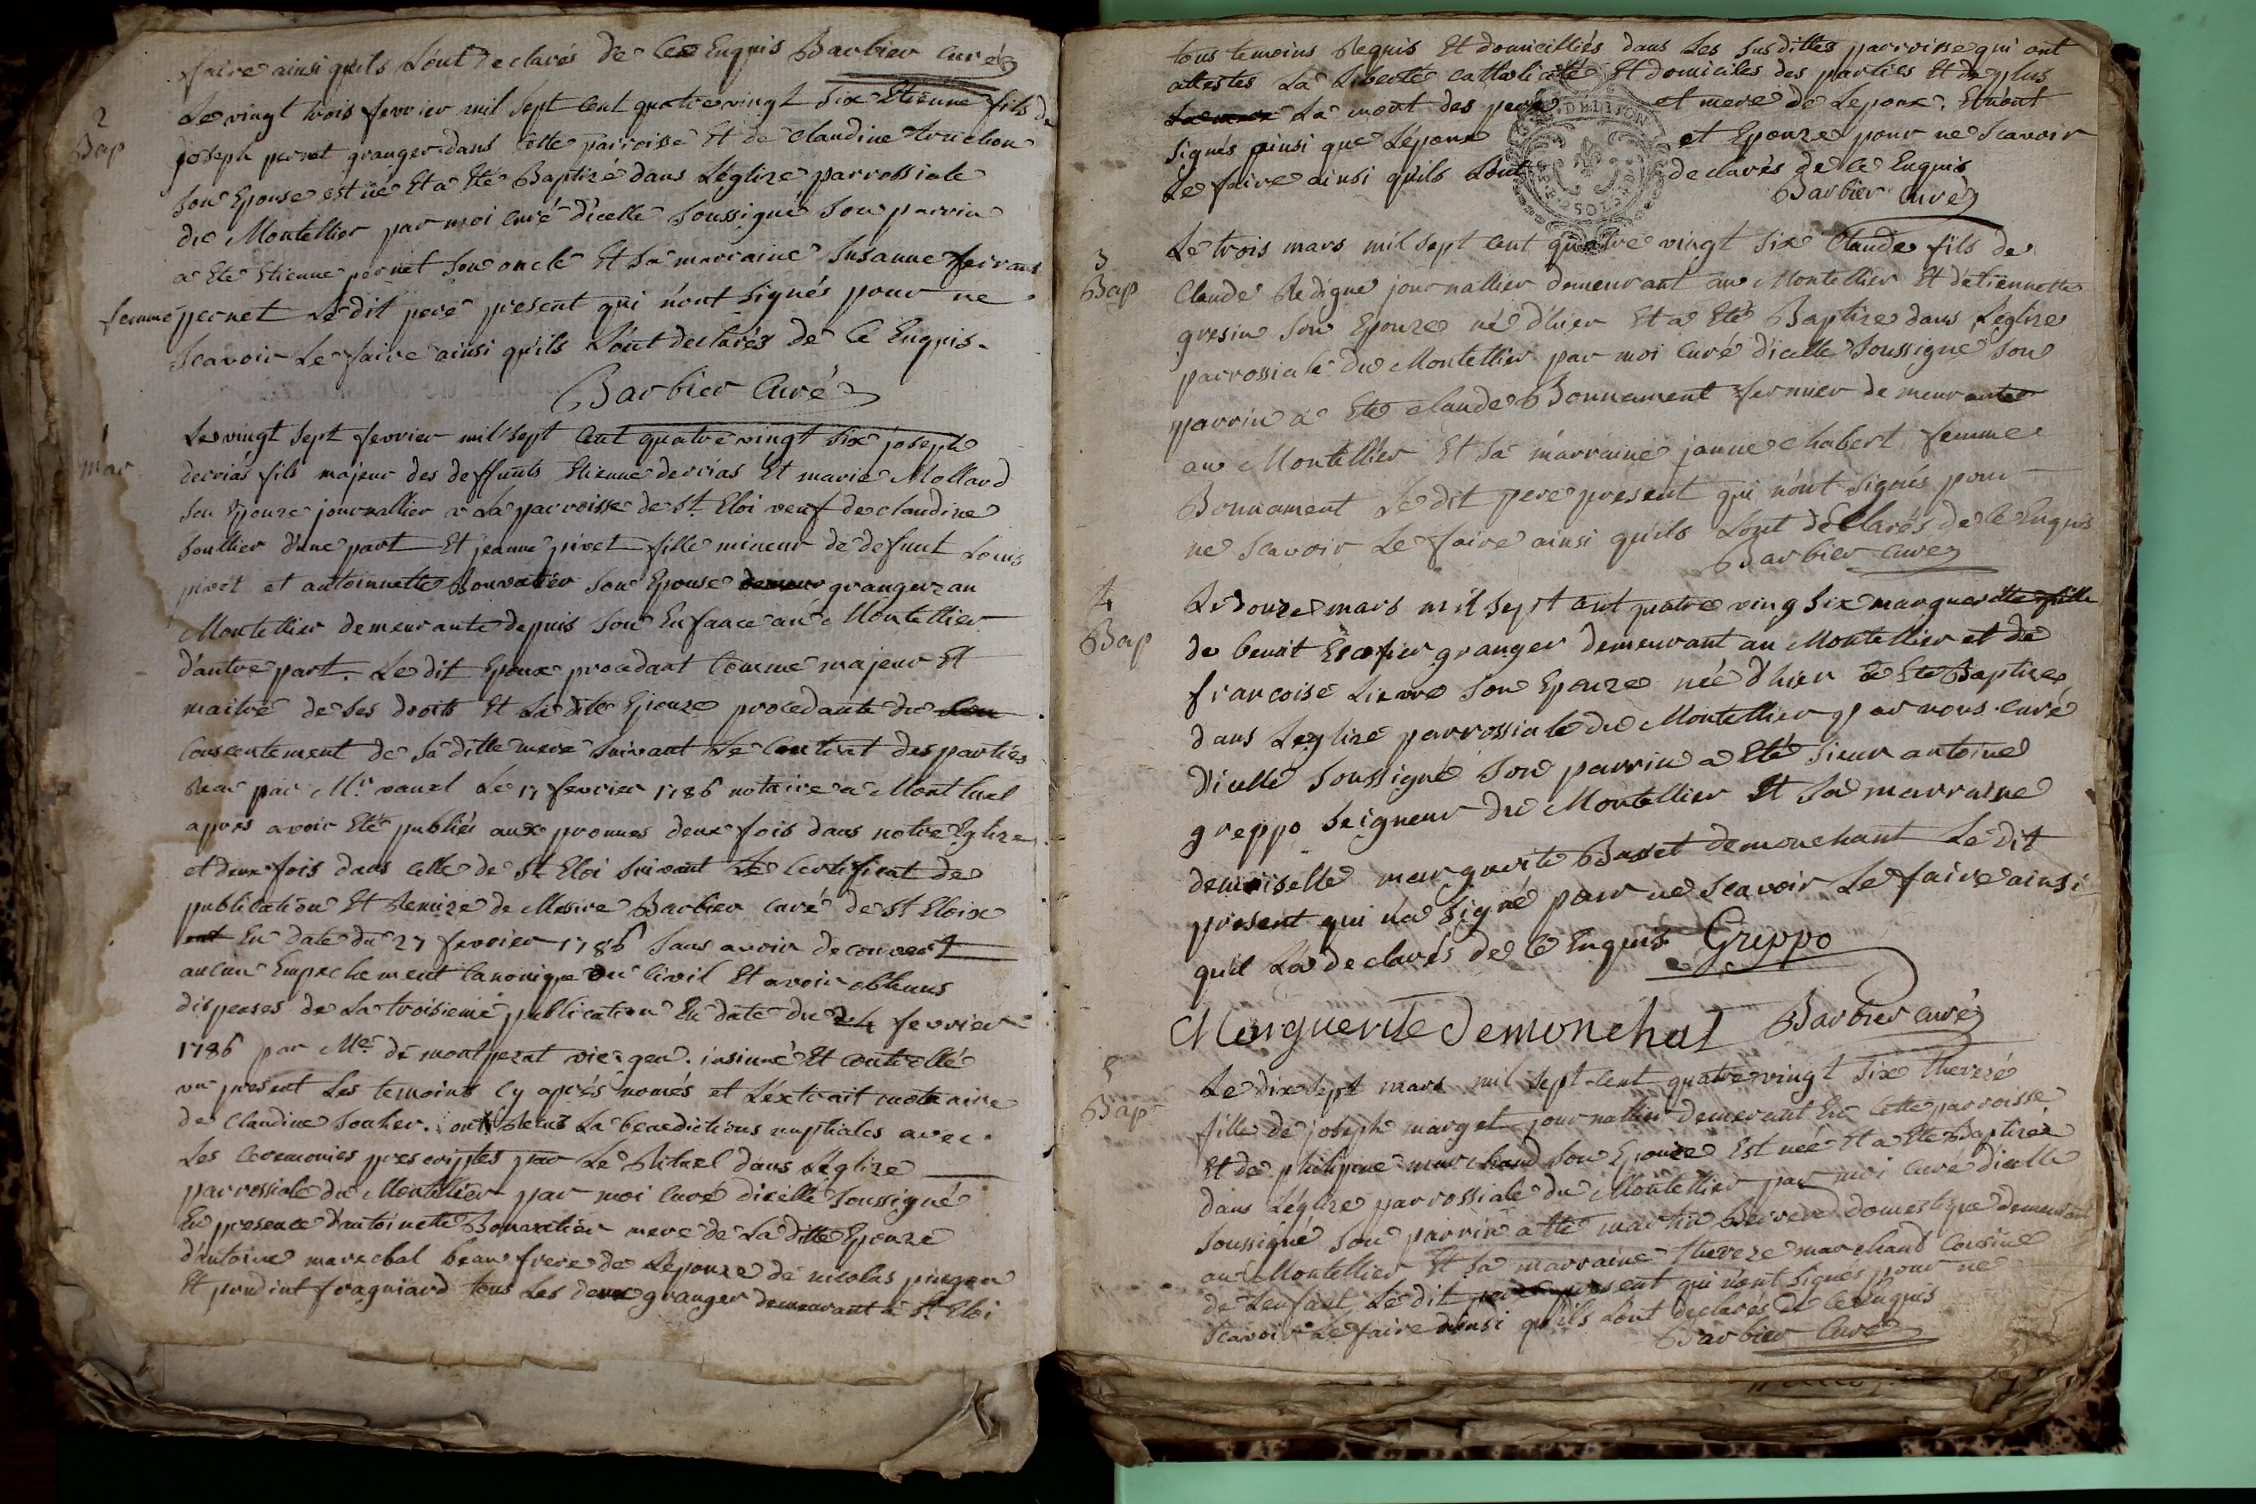 faire ainsi quils L'ont declarés de Ce Enquis Barbier Curé
2
Bap
Le vingt trois fevrier mil sept Cent quatre vingt six Etienne fils de
joseph pernet granger dans Cette parroisse Et de Claudine truchon
Son Epouse est né Et a Eté Baptizé dans L'église parrossiale
du Montellier par moi Curé d'icelle Soussigné Son parrin
a Eté Etienne pernet Son oncle Et Sa marraine Susanne
femme pernet Le dit pere present qui n'ont Signés pour ne
Scavoir Le faire ainsi qu'ils L'ont declarés de Ce Enquis.
Barbier Curé
Mar
Le vingt Sept fevrier mil Sept Cent quatre vingt Six joseph
derrias fils majeur des deffunts Etienne derrias Et marie Mollard
Son Epouze journallier a La parroisse de St. Eloi veuf de Claudine
Soullier d'une part Et jeanne pivet fille mineur de defunt Louis
pivet et antoinette Bonvatier Son Epouse demeur granger au
Montellier demeurante depuis Son Enfance au Montellier
d'autre part. Le dit Epoux procedant Comme majeur Et
maitre de Ses droits Et La dite Epouze procedante du
Consentement de Sa ditte mere Suivant Le Contrat des parties
Recu par Mr. vauxl Le 17 fevrier 1786 notaire a Montluel
apres avoir Eté publiés aux pronnes deux fois dans notre Eglize
et deux fois dans Celle de St Eloi Suivant Le Certificat de
publication Et Remize de Messire Barbier Curé de St Eloix
En Date du 27 fevrier 1786 Sans avoir decouvert
aucun Empechement Canonique ou Civil Et avoir obtenus
dispenses de La troisieme publication En date du 24 fevrier
1786 par Mr. de montperat vic. gen. insinué Et Controllé
vu present Les temoins Cy après només et L'extrait mortuaire
de Claudine Soulier. ont Recus La benedictions nuptiales avec
Les Ceremonies prescriptes par Le Rituel dans L'églize
parrossiale du Montelier par moi Curé d'icelle Soussigné
En presence d'antoinette Bonvatier mere de La ditte Epouze
d'antoine marechal beau frere de L'epouze de nicolas pingon
Et prudint fragniard tous Les deux granger demeurant a St. Eloi
tous temoins Requis Et domicilliés dans Les Susdittes parroisse qui ont
attestes La Liberté Catholicité Et domiciles des parties Et de plus
La mort des pere et mere de L'epoux. Et n'ont
Signés ainsi que L'epoux et Epouze pour ne Scavoir
Le faire ainsi qu'ils L'ont declarés de Ce Enquis
Barbier Curé
3
Bap
Le trois mars mil Sept Cent quatre vingt Six Claude fils de
Claude Redigue journallier demeurant au Montellier Et d'etiennette
gresin Son Epouze né d'hier Et a Eté Baptize dans L'eglize
parrossiale du Montellier par moi Curé d'icelle Soussigné Son
parrin a Eté Claude Bonnament fermier demeurant
au Montellier Et Sa marraine janne Chabert femme
Bonnament Le dit pere present qui n'ont Signés pour
ne Scavoir Le faire ainsi qu'ils L'ont déclarés de Ce Enquis
Barbier Curé
4
Bap
Le Douze mars mil Sept Cent quatre ving Six marguerette fille
de benoit Escofier granger demeurant au Montellier et de
francoise Lievre Son Epouze née d'hier a Eté Baptizé
dans L'eglize parrossiale du Montellier par nous Curé
d'icelle Soussigné Son parrin a Eté Sieur antoine
greppo Seigneur du Montellier Et Sa marraine
demoiselle marguerite Basset demonchant Le dit
present qui n'a Signé pour ne Scavoir Le faire ainsi
qu'il La declarés de Ce Enquis. Greppo
Marguerite Demonchat Barbier Curé
5
Bap
Le dix sept mars mil Sept Cent quatre vingt Six therezé
fille de joseph marget journallier demeurant En Cette parroisse
Et de philipine marchand Son Epouze Est née Et a Eté Baptizée
dans L'églize parrossiale du Montellier par moi Curé d'icelle
Soussigné Son parrin a Eté martin domestique demeurant
au Montellier Et Sa marraine thereze marchand Cousine
de L'enfant, Le dit pere present qui n'ont Signés pour ne
Scavoir Le faire ainsi qu'ils L'ont declarés de Ce Enquis
Barbier Curé